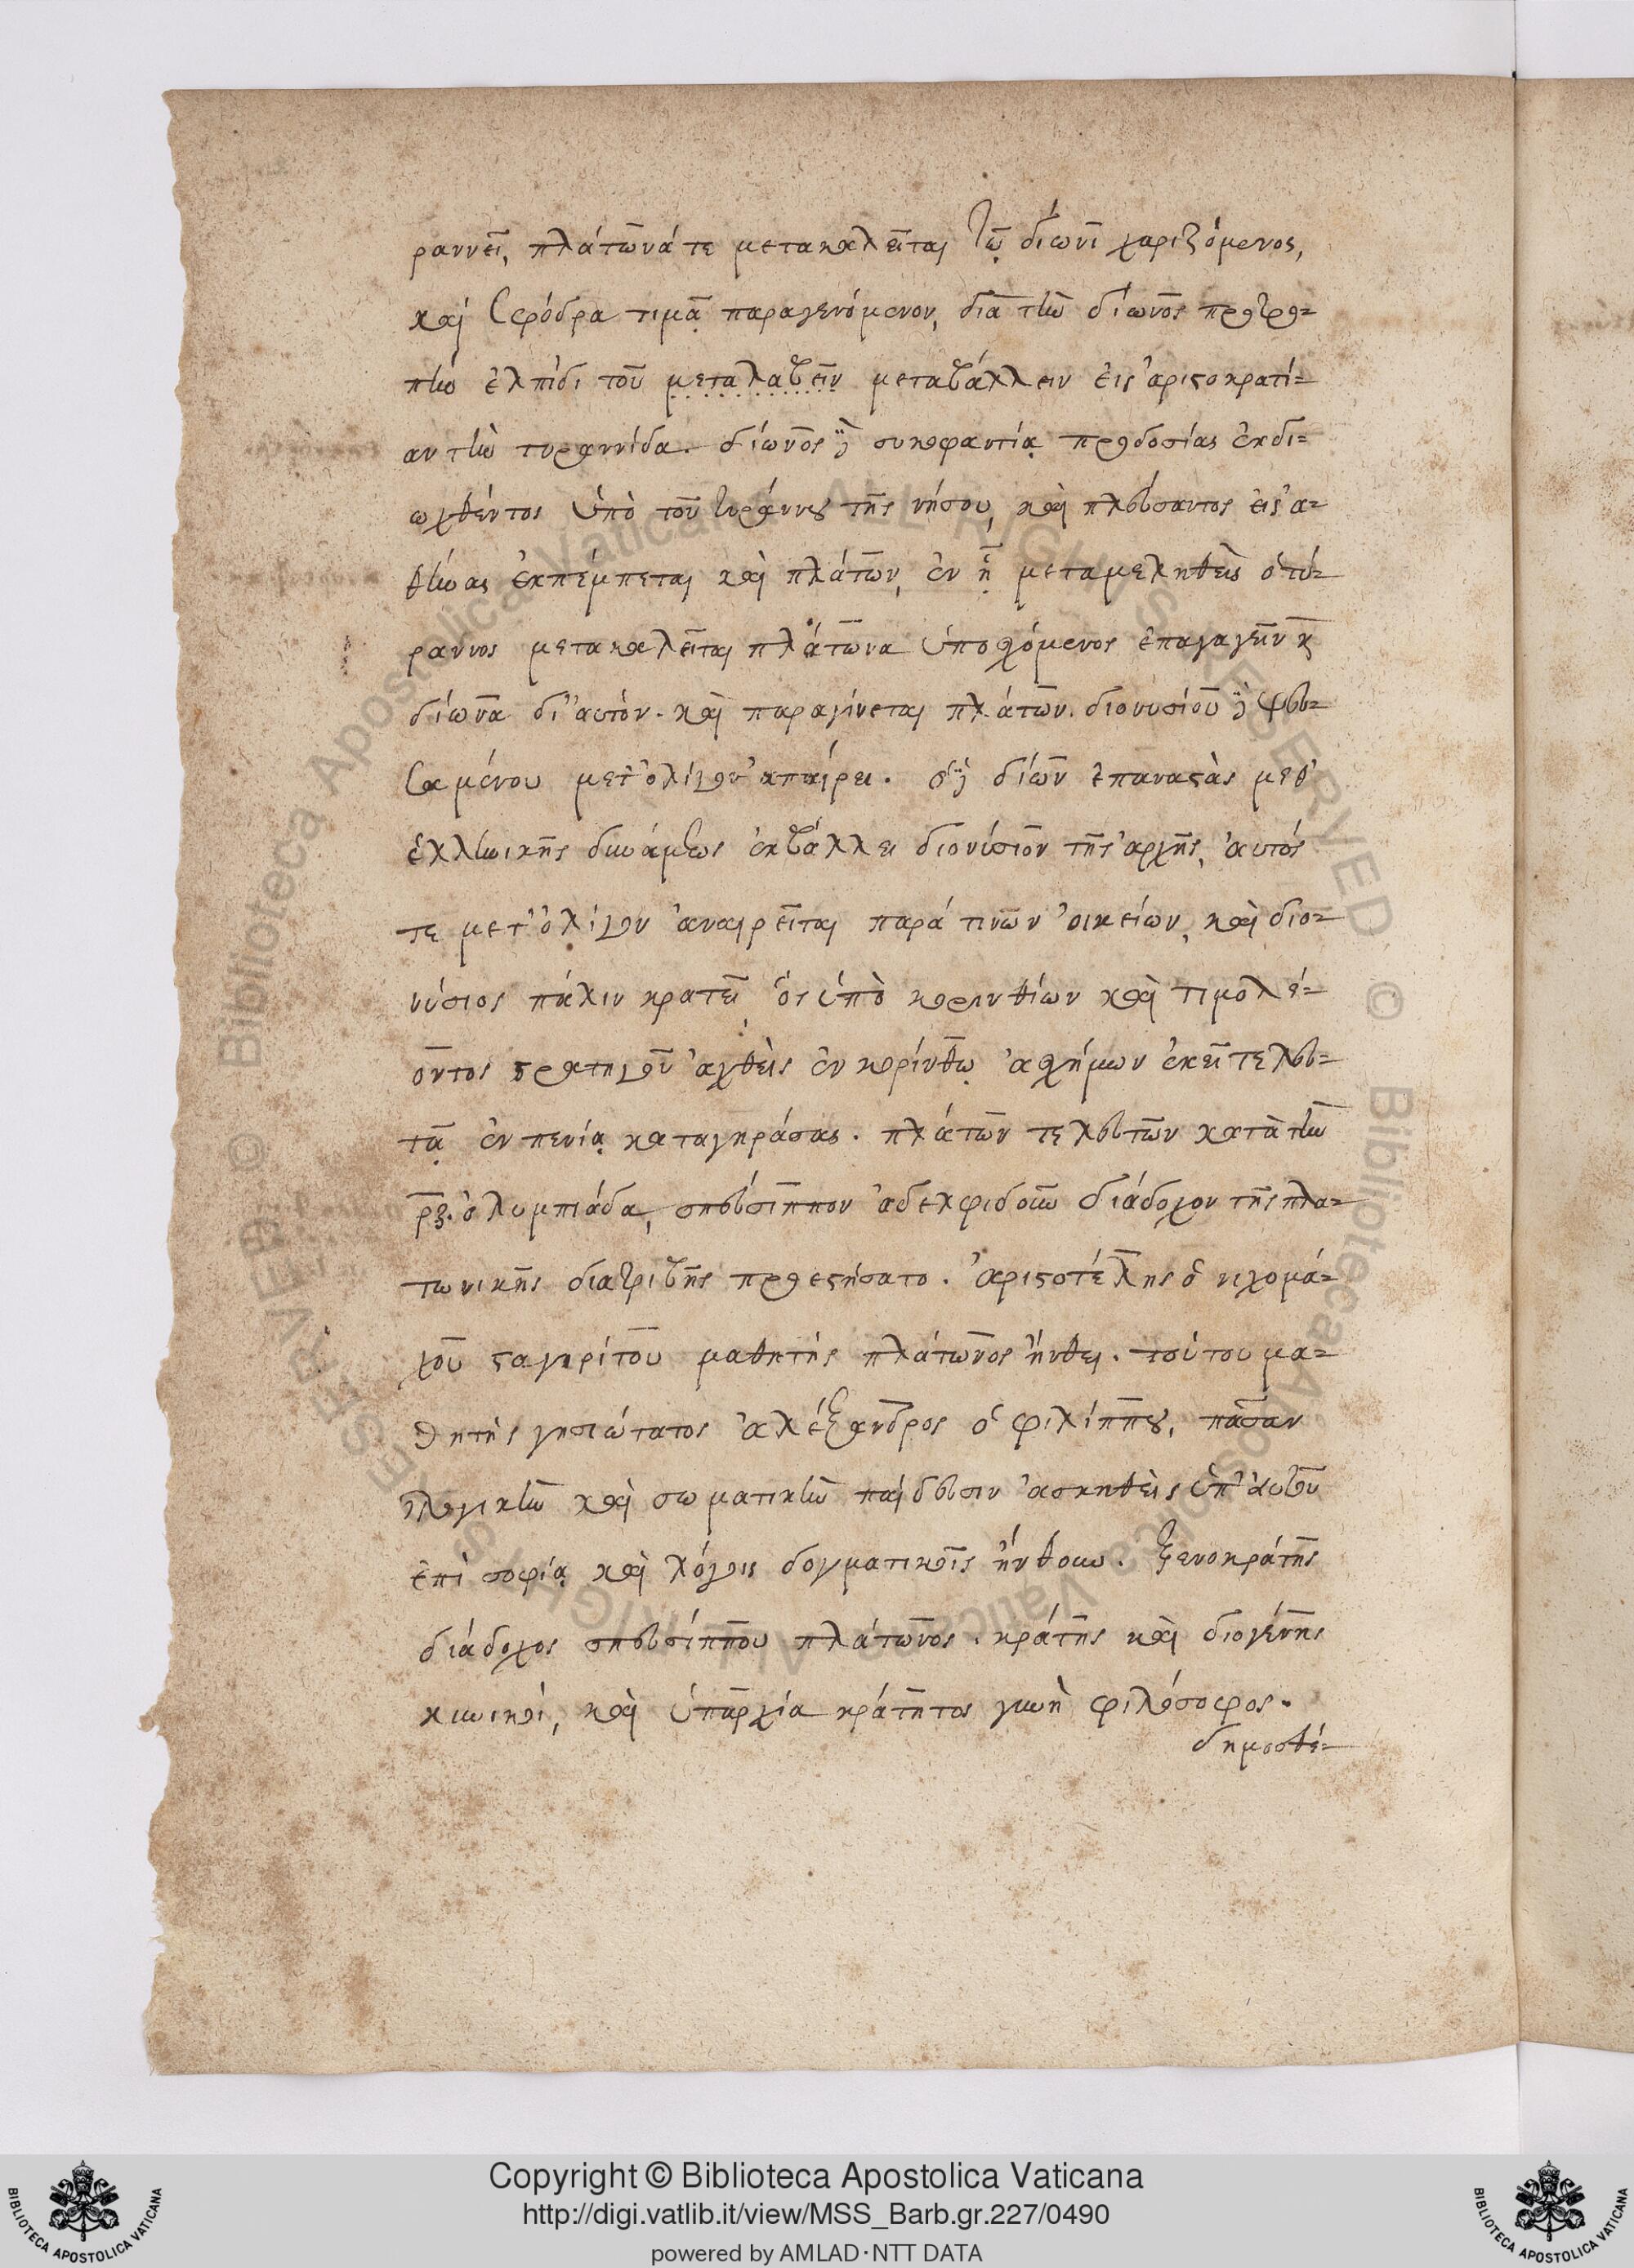 ραννεῖ, πλάτωνά τε μετακαλεῖται τῶ δίωνι χαριζόμενος,
καὶ σφόδρα τιμᾷ παραγενόμενον, διὰ τὴν δίωνος προτρο=
πὴν ἐλπίδι τοῦ μεταλαβεῖν μεταβάλλειν εἰς ἀριστοκρατί=
αν τὴν τυραννίδα. δίωνος δὲ συκοφαντίᾳ προδοσίας ἐκδι=
ωχθέντος ὑπὸ τοῦ τυράννου τῆς νήσου, καὶ πλεύσαντος εἰς ἀ=
θήνας ἐκπέμπεται καὶ πλάτων, ἐν ᾗ μεταμεληθεὶς ὁ τύ=
ραννος μετακαλεῖται πλάτωνα ὑποσχόμενος ἐπαγαγεῖν κ
δίωνα δι' αὐτόν. καὶ παραγίνεται πλάτων. διονυσίου δὲ ψευ=
σαμένου μετ' ὀλίγον ἀπαίρει. ὁ δὲ δίων ἐπαναστὰς μεθ'
ἑλληνικῆς δυνάμεως ἐκβάλλει διονύσιον τῆς ἀρχῆς, αὐτός
τε μετ' ὀλίγον ἀναιρεῖται παρά τινων οἰκείων, καὶ διο=
νύσιος πάλιν κρατεῖ, ὃς ὑπὸ κορινθίων καὶ τιμολέ=
οντος στρατηγοῦ ἀχθεὶς ἐν κορίνθῳ ἀσχήμων ἐκεῖ τελευ=
τᾷ ἐν πενίᾳ καταγηράσας. πλάτων τελευτῶν κατὰ τὴν
ρξ. ὀλυμπιάδα, σπεύσιππον ἀδελφιδοῦν διάδοχον τῆς πλα=
τωνικῆς διατριβῆς προεστήσατο. ἀριστοτέλης ὁ νιχομά=
χου σταγηρίτου μαθητής πλάτωνος ἤνθει. τούτου μα=
θητὴς γνησιώτατος ἀλέξανδρος ὁ φιλίππου, πᾶσαν
λογικὴν καὶ σωματικὴν παίδευσιν ἀσκηθεὶς ὑπ' αὐτοῦ
ἐπὶ σοφίᾳ καὶ λόγοις δογματικοῖς ἤνθουν. ξενοκράτης
διάδοχος σπευσίππου πλάτωνος. κράτης καὶ διογένης
κυνικοί, καὶ ὑπαρχία κράτητος γυνὴ φιλόσοφος.
δημοσθέ=
Copyright © Biblioteca Apostolica Vaticana
http://digi.vatlib.it/view/MSS_Barb.gr.227/0490
powered by AMLAD·NTT DATA
BIBLIOTECA APOSTOLICA VATICANA
BIBLIOTECA APOSTOLICA VATICANA